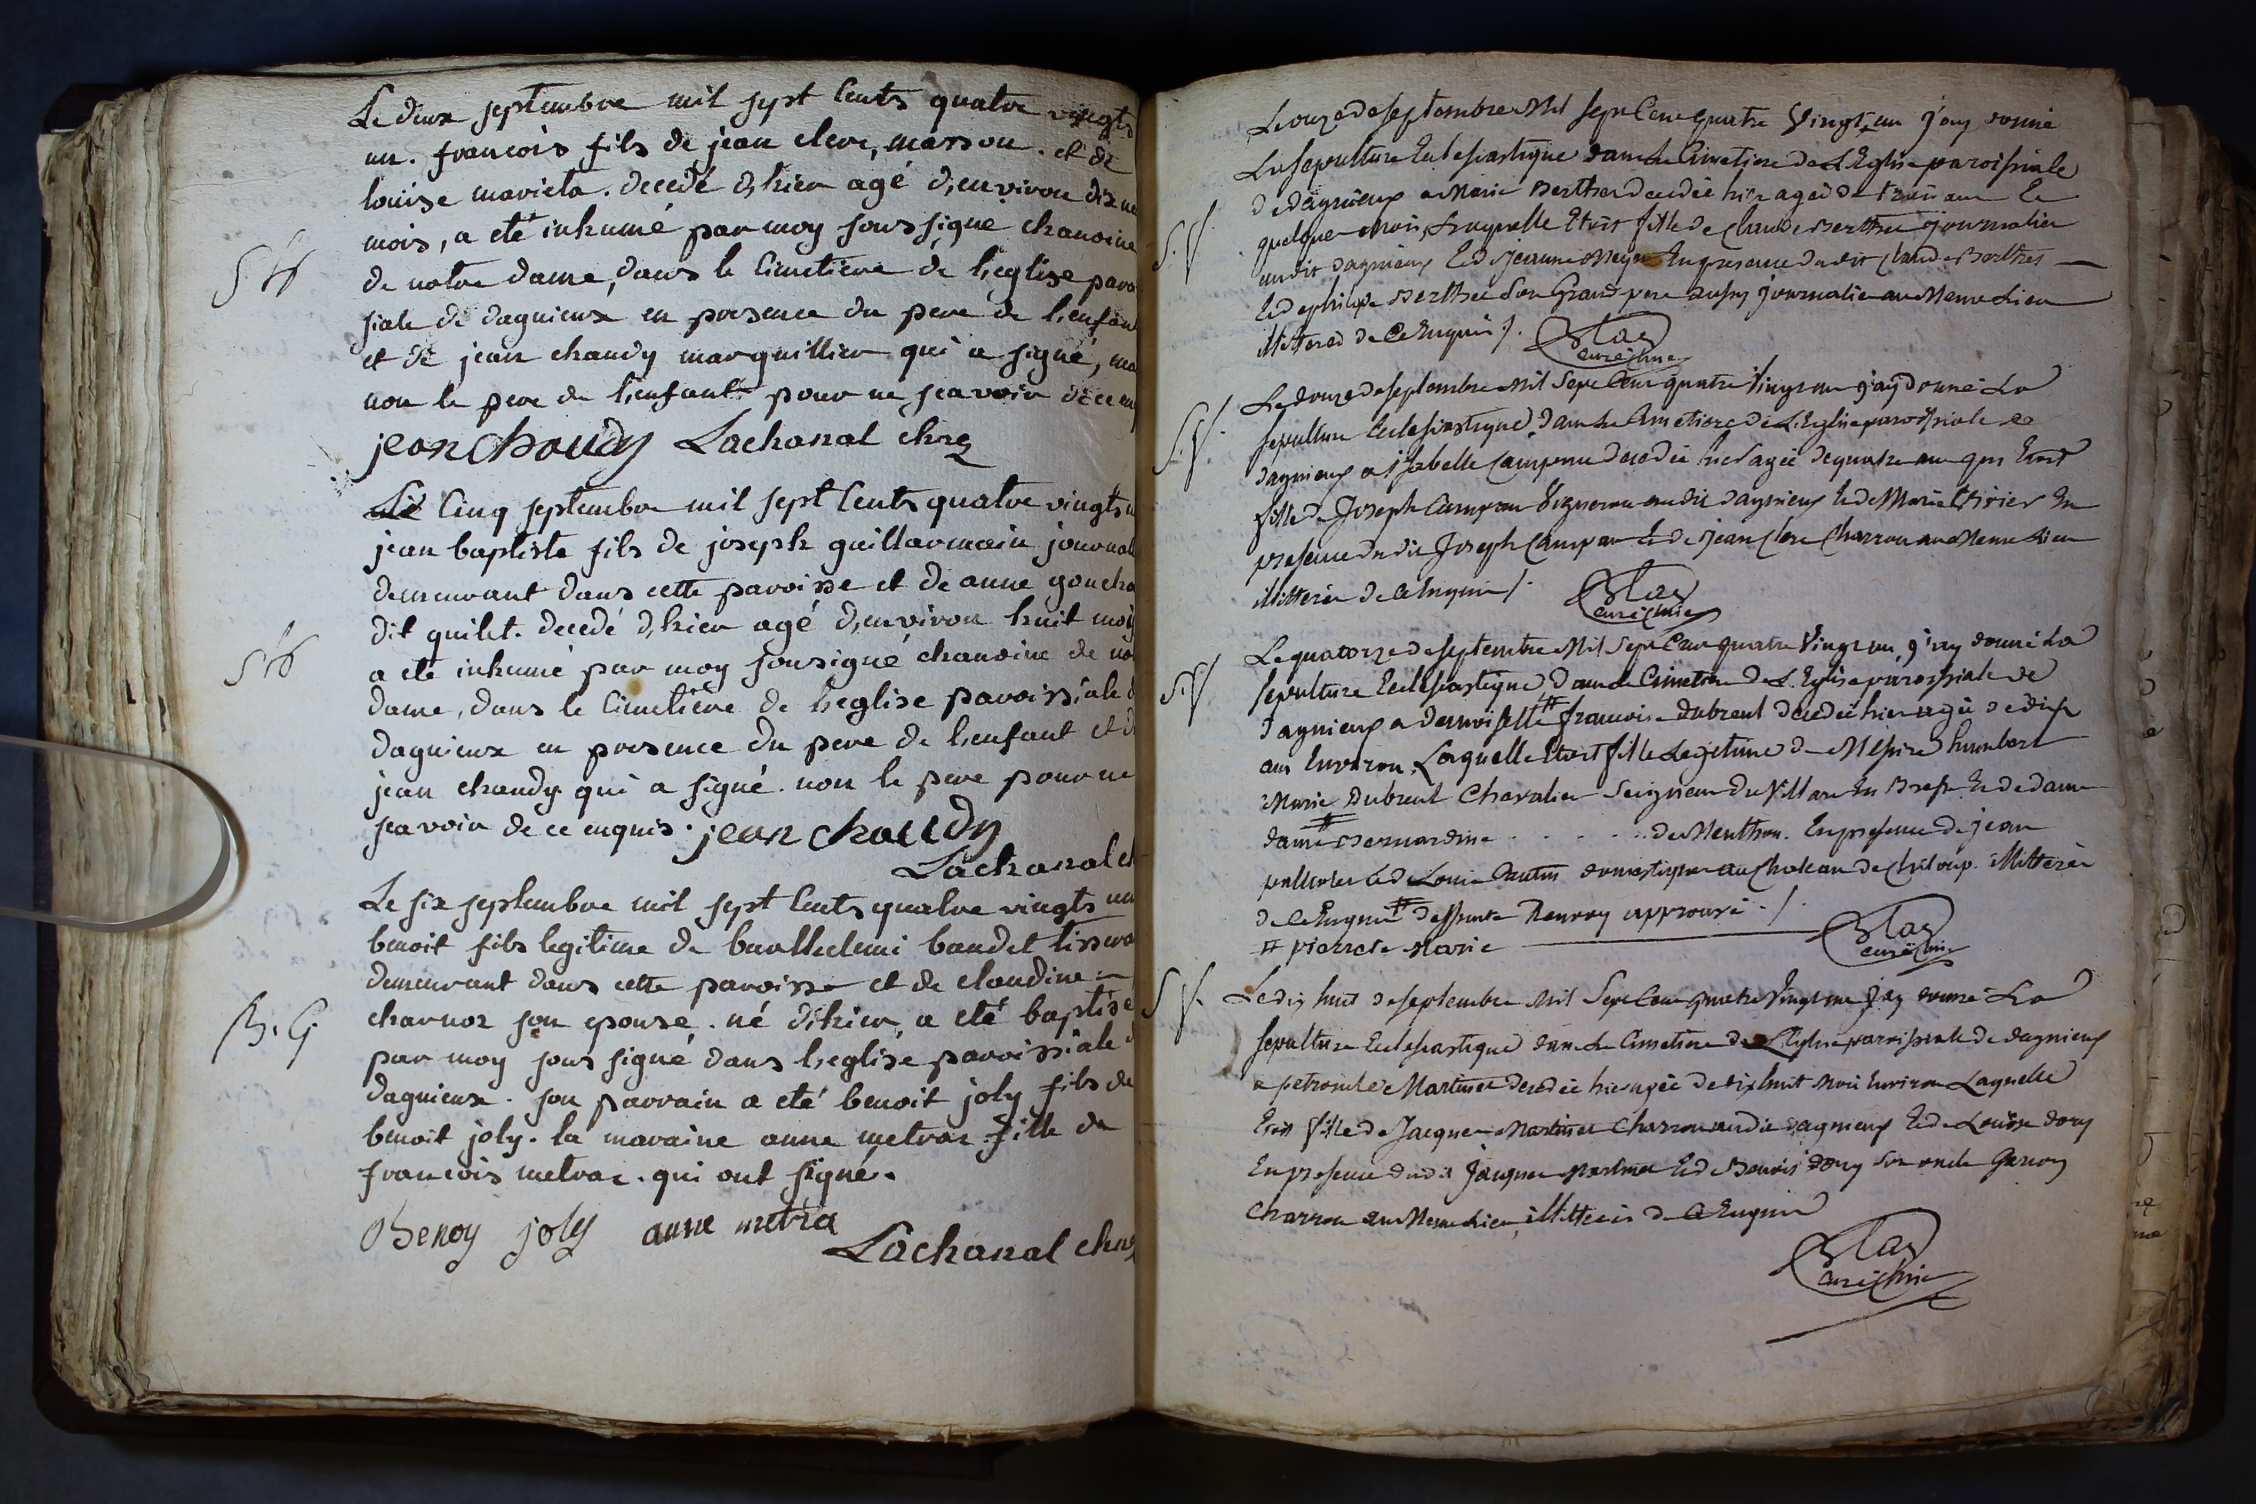 Le deux septembre mil sept cents quatre vingts
un. françois fils de jean clere, masson. et de
louise marieta. decedé d,hier agé d,environ dix ne
mois, a eté inhumé par moy soussigné chanoine
de notre dame, dans le cimetiere de l,eglise paro
siale de dagnieux en presence du pere de l,enfant
et de jean chaudy marguillier qui a signé, ma
non le pere de l,enfant pour ne sçavoir de ce enq
jean chaudy Lachanal chne
S. 
Le cinq septembre mil sept cents quatre vingts u
jean baptiste fils de joseph guillarmain journal
demeurant dans cette paroisse et de anne goucha
dit quilet. decedé d,hier agé d,environ huit moy
a eté inhumé par moy sousigné chanoine de no
dame, dans le cimetière de l,eglise paroissiale d
dagnieux en presence du pere de l,enfant et d
jean chaudy qui a signé. non le pere pour ne
sçavoir de ce enquis. jean chaudy
Lachanal ch
S. 
Le six septembre mil sept cents quatre vingts un
benoit fils legitime de barthelemi baudet tissera
demeurant dans cette paroisse et de claudine
charnoz son epouse. né d'hier, a eté baptisé
par moy sous signé dans l,eglise paroissiale d
dagnieux. son parrain a eté benoit joly fils de
benoit joly. la maraine anne metraz fille de
françois metraz. qui ont signé.
B. G.
Benoy joly anne metra
Lachanal chne
Le onze de septembre Mil sept Cent quatre Vingt un J'ay donné
La sepulture Eclesiastique dans Le Cimetiere de L'Eglise paroissiale
de dagnieux a Marie Berthet decedée hier ageé de trois ans Et
quelques mois, Laquelle Etoit fille de Claude Berthet Journalier
audit dagnieux Et de jeanne Meyer En presence dudit Claude Berthet
Et de philipe Berthet son Grand pere aussy Journalier au Meme Lieu
illitterés de Ce Enquis /.
S. V.
Le douze de septembre Mil Sept Cent quatre Vingt un j'ay donné La
sepulture Eclesiastique dans Le Cimetiere de L'Eglise paroissiale de
dagnieux a isabelle Campan decedée hier agée de quatre ans qui Etoit
fille de Joseph Campan Vigneron audit dagnieux Et de Marie Tivier En
presence du dit Joseph Campan Et de jean Clere Charron au Meme Lieu
illitterés de Ce Enquis /.
S. V.
Le quatorze de septembre Mil Sept Cent quatre Vingt un, j'ay donné La
sepulture Eclesiastique dans Le Cimetiere de L'Eglise paroissiale de
dagnieux a demoiselle # francoise Dubreul decedée hier agée de dix
ans Environ, Laquelle Etoit fille Legitime de Messire humbert
Marie Dubreul Chevalier Seigneur du Villars En Bresse Et de dame
dame # Bernardine . . . . . . de Menthon. En presence de jean
Et de Louis Dantin domestiques au Chateau de Chiloup. illitterés
de Ce Enquis # dessus Renvoy approuvé . /.
# pierrete Marie
S. V.
Le dix huit de septembre Mil Sept Cent quatre Vingt un J'ay donné La
sepulture Eclesiastique dans Le Cimetiere de L'Eglise paroissiale de dagnieux
a petronile Martinet decedée hier agée de dix huit mois Environ Laquelle
Etoit fille de Jacques Martinet Charron audit dagnieux Et de Louise dory
En presence dudit Jacques Martinet Et de Benoit dory son oncle Garcon
Charron au Meme Lieu, illitterés de Ce Enquis
S. V.